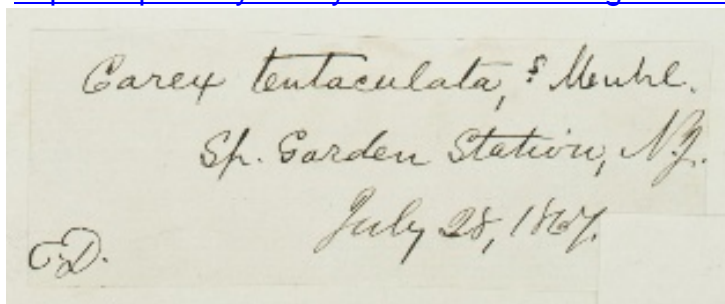 Carex tentaculata, Muhl.
Sp. Garden Station, N.J.
July 28, 1867.
C.D.